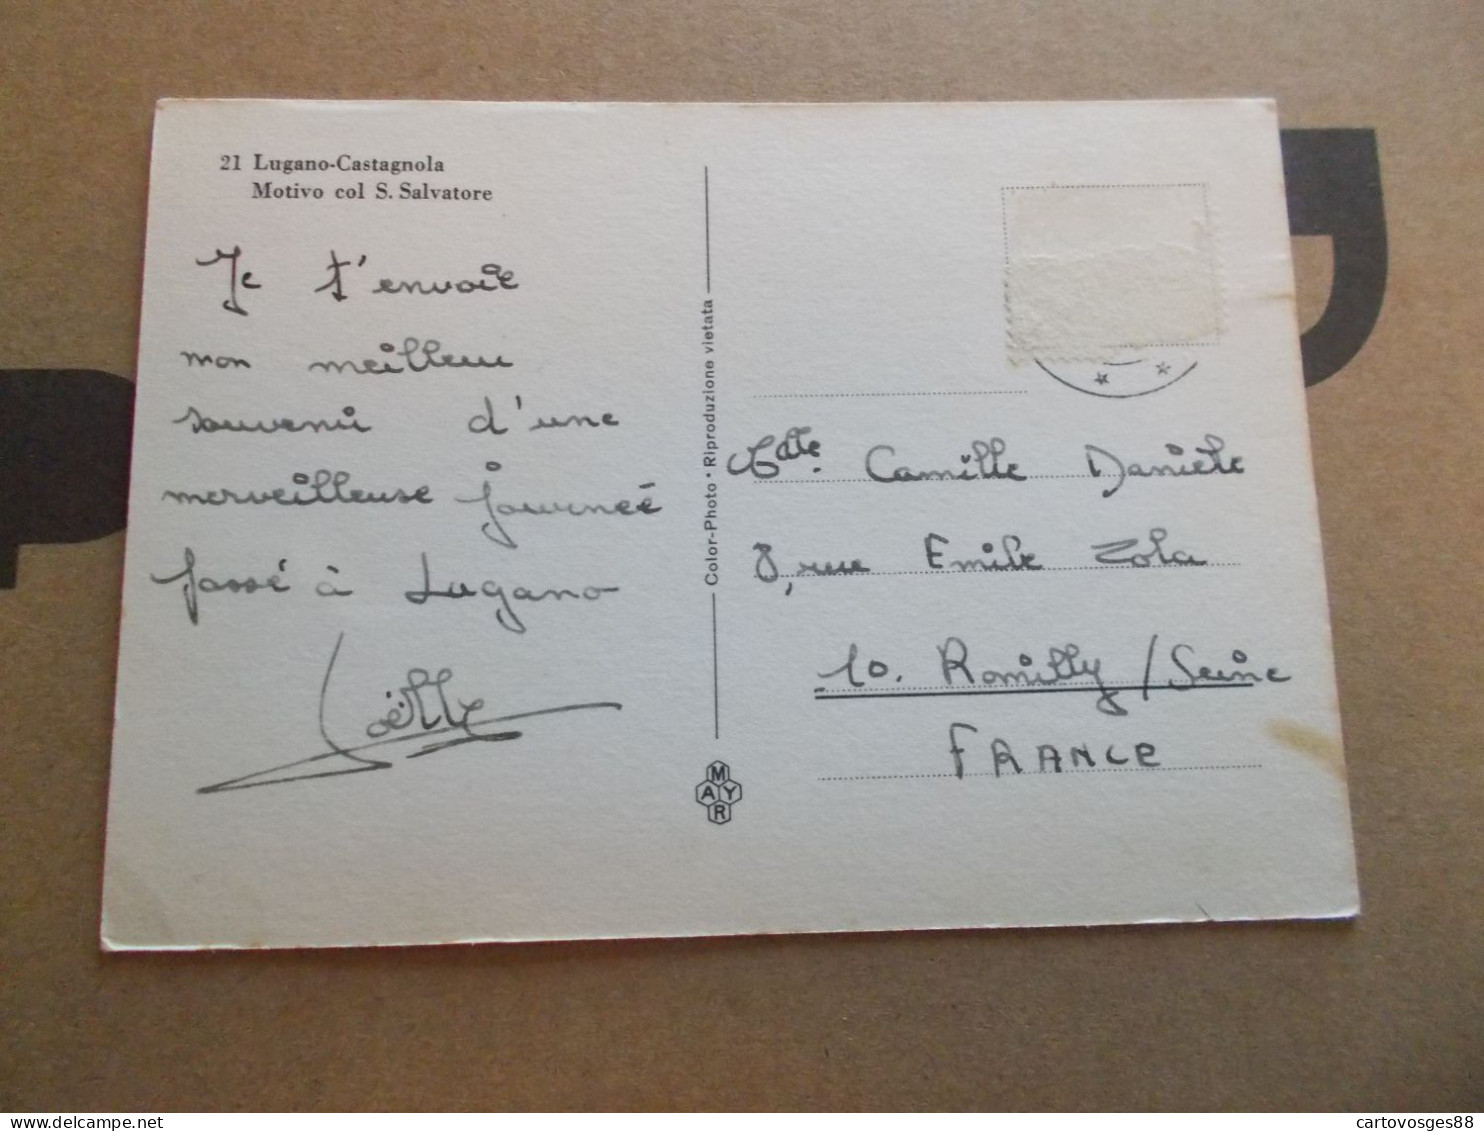 21 Lugano-Castagnola
Motivo col S. Salvatore
Je t'envoie
mon meilleur
souvenir d'une
merveilleuse journeé
passé à Lugano
Joëlle
Color-Photo • Riproduzione vietata
M
A Y
R
Camille Danièle
8, rue Emile Zola
10. Romilly/Seine
FRANCE
cartovosges88